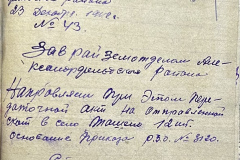 района
23 Декабр. 1942 г.
№ 43
Зав райземотделом Але-
ксандровского района
Направляем при этом пере-
даточной акт на отправленной
скот в село Ташево 12 шт.
основание приказа РЗО. № 3120.